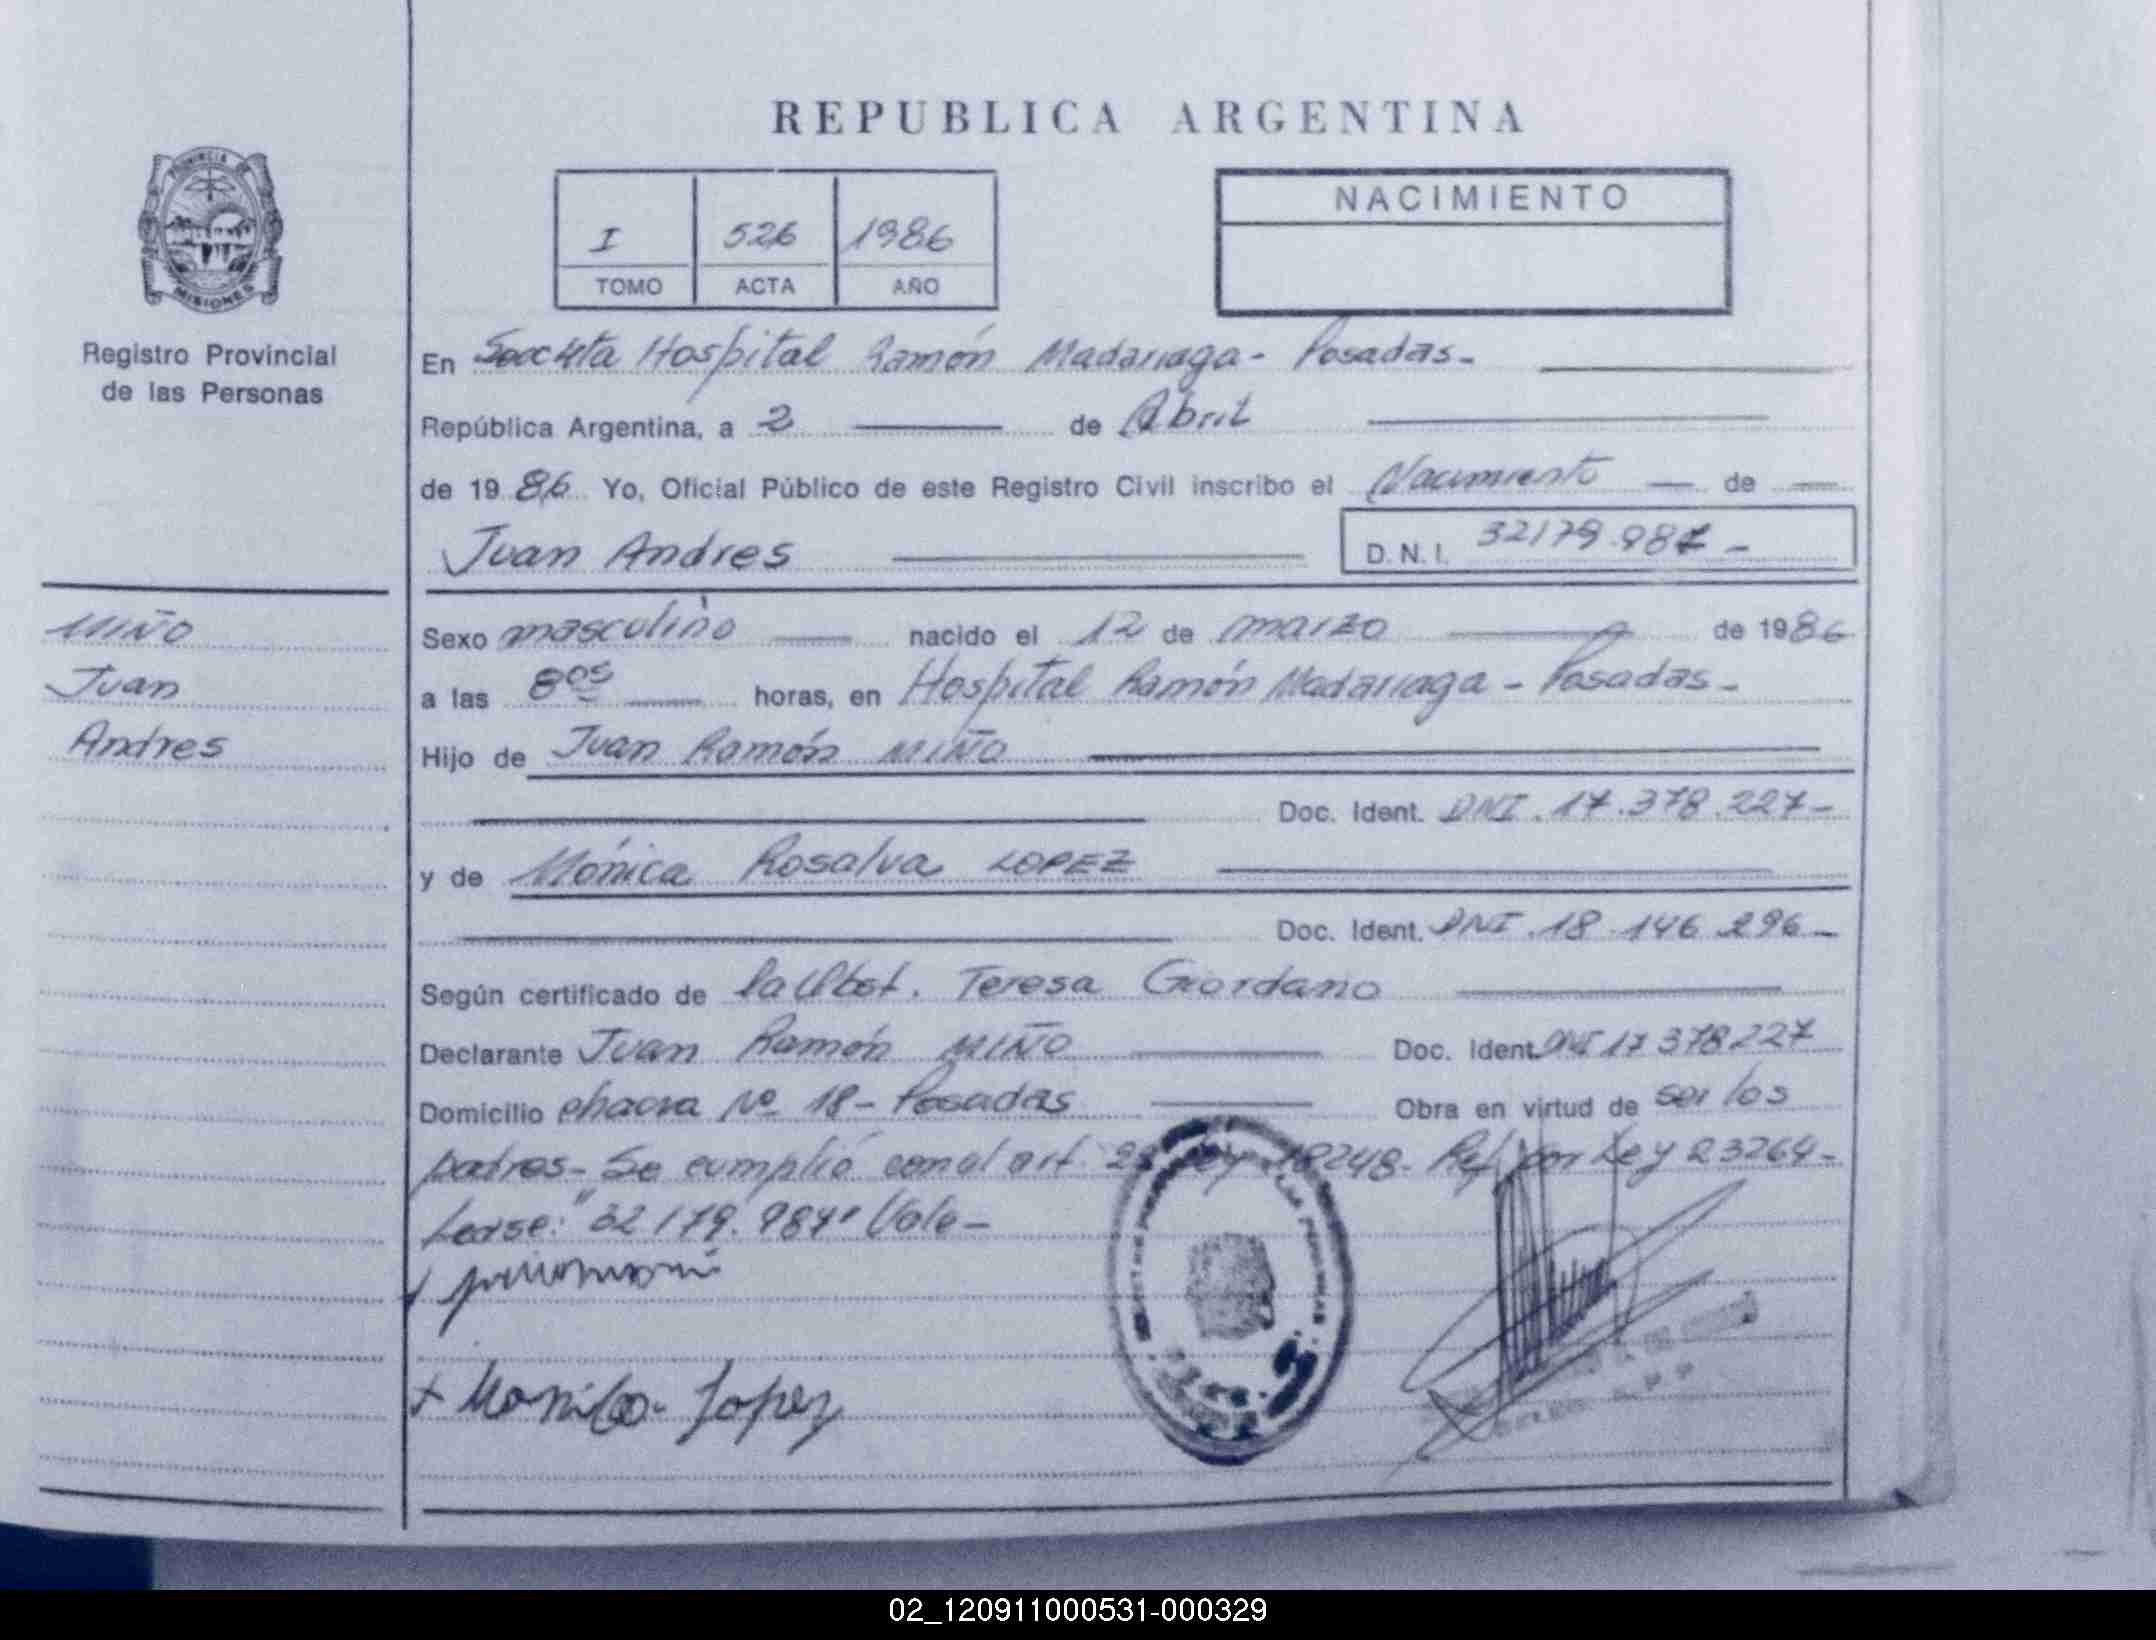 REPUBLICA ARGENTINA
PROVINCIA DE
MISIONES
Registro Provincial
de las Personas
I 526 1986
TOMO ACTA AÑO
NACIMIENTO
En Hospital Ramón Madariaga- Posadas-
República Argentina, a 2 de Abril
de 1986 Yo, Oficial Público de este Registro Civil inscribo el Nacimiento de
Juan Andres D.N.I. 32179.984-
MIÑO
Juan
Andres
Sexo masculino nacido el 12 de marzo de 1986
a las 8 05 horas, en Hospital Ramón Madariaga - Posadas-
Hijo de Juan Ramón MIÑO
Doc. Ident. DNI. 17.378.227-
y de Mónica Rosalva LOPEZ
Doc. Ident. DNI. 18.146.296-
Según certificado de la Obst. Teresa Giordano
Declarante Juan Ramón MIÑO Doc. Ident. DNI 17 378227
Domicilio chacra Nº 18- Posadas Obra en virtud de ser los
padres- Se cumplió con el art. 2 Ley 18248- Ref. por Ley 23264-
Lease: "32179.984" Vale-
+ Monica Lopez
02_120911000531-000329